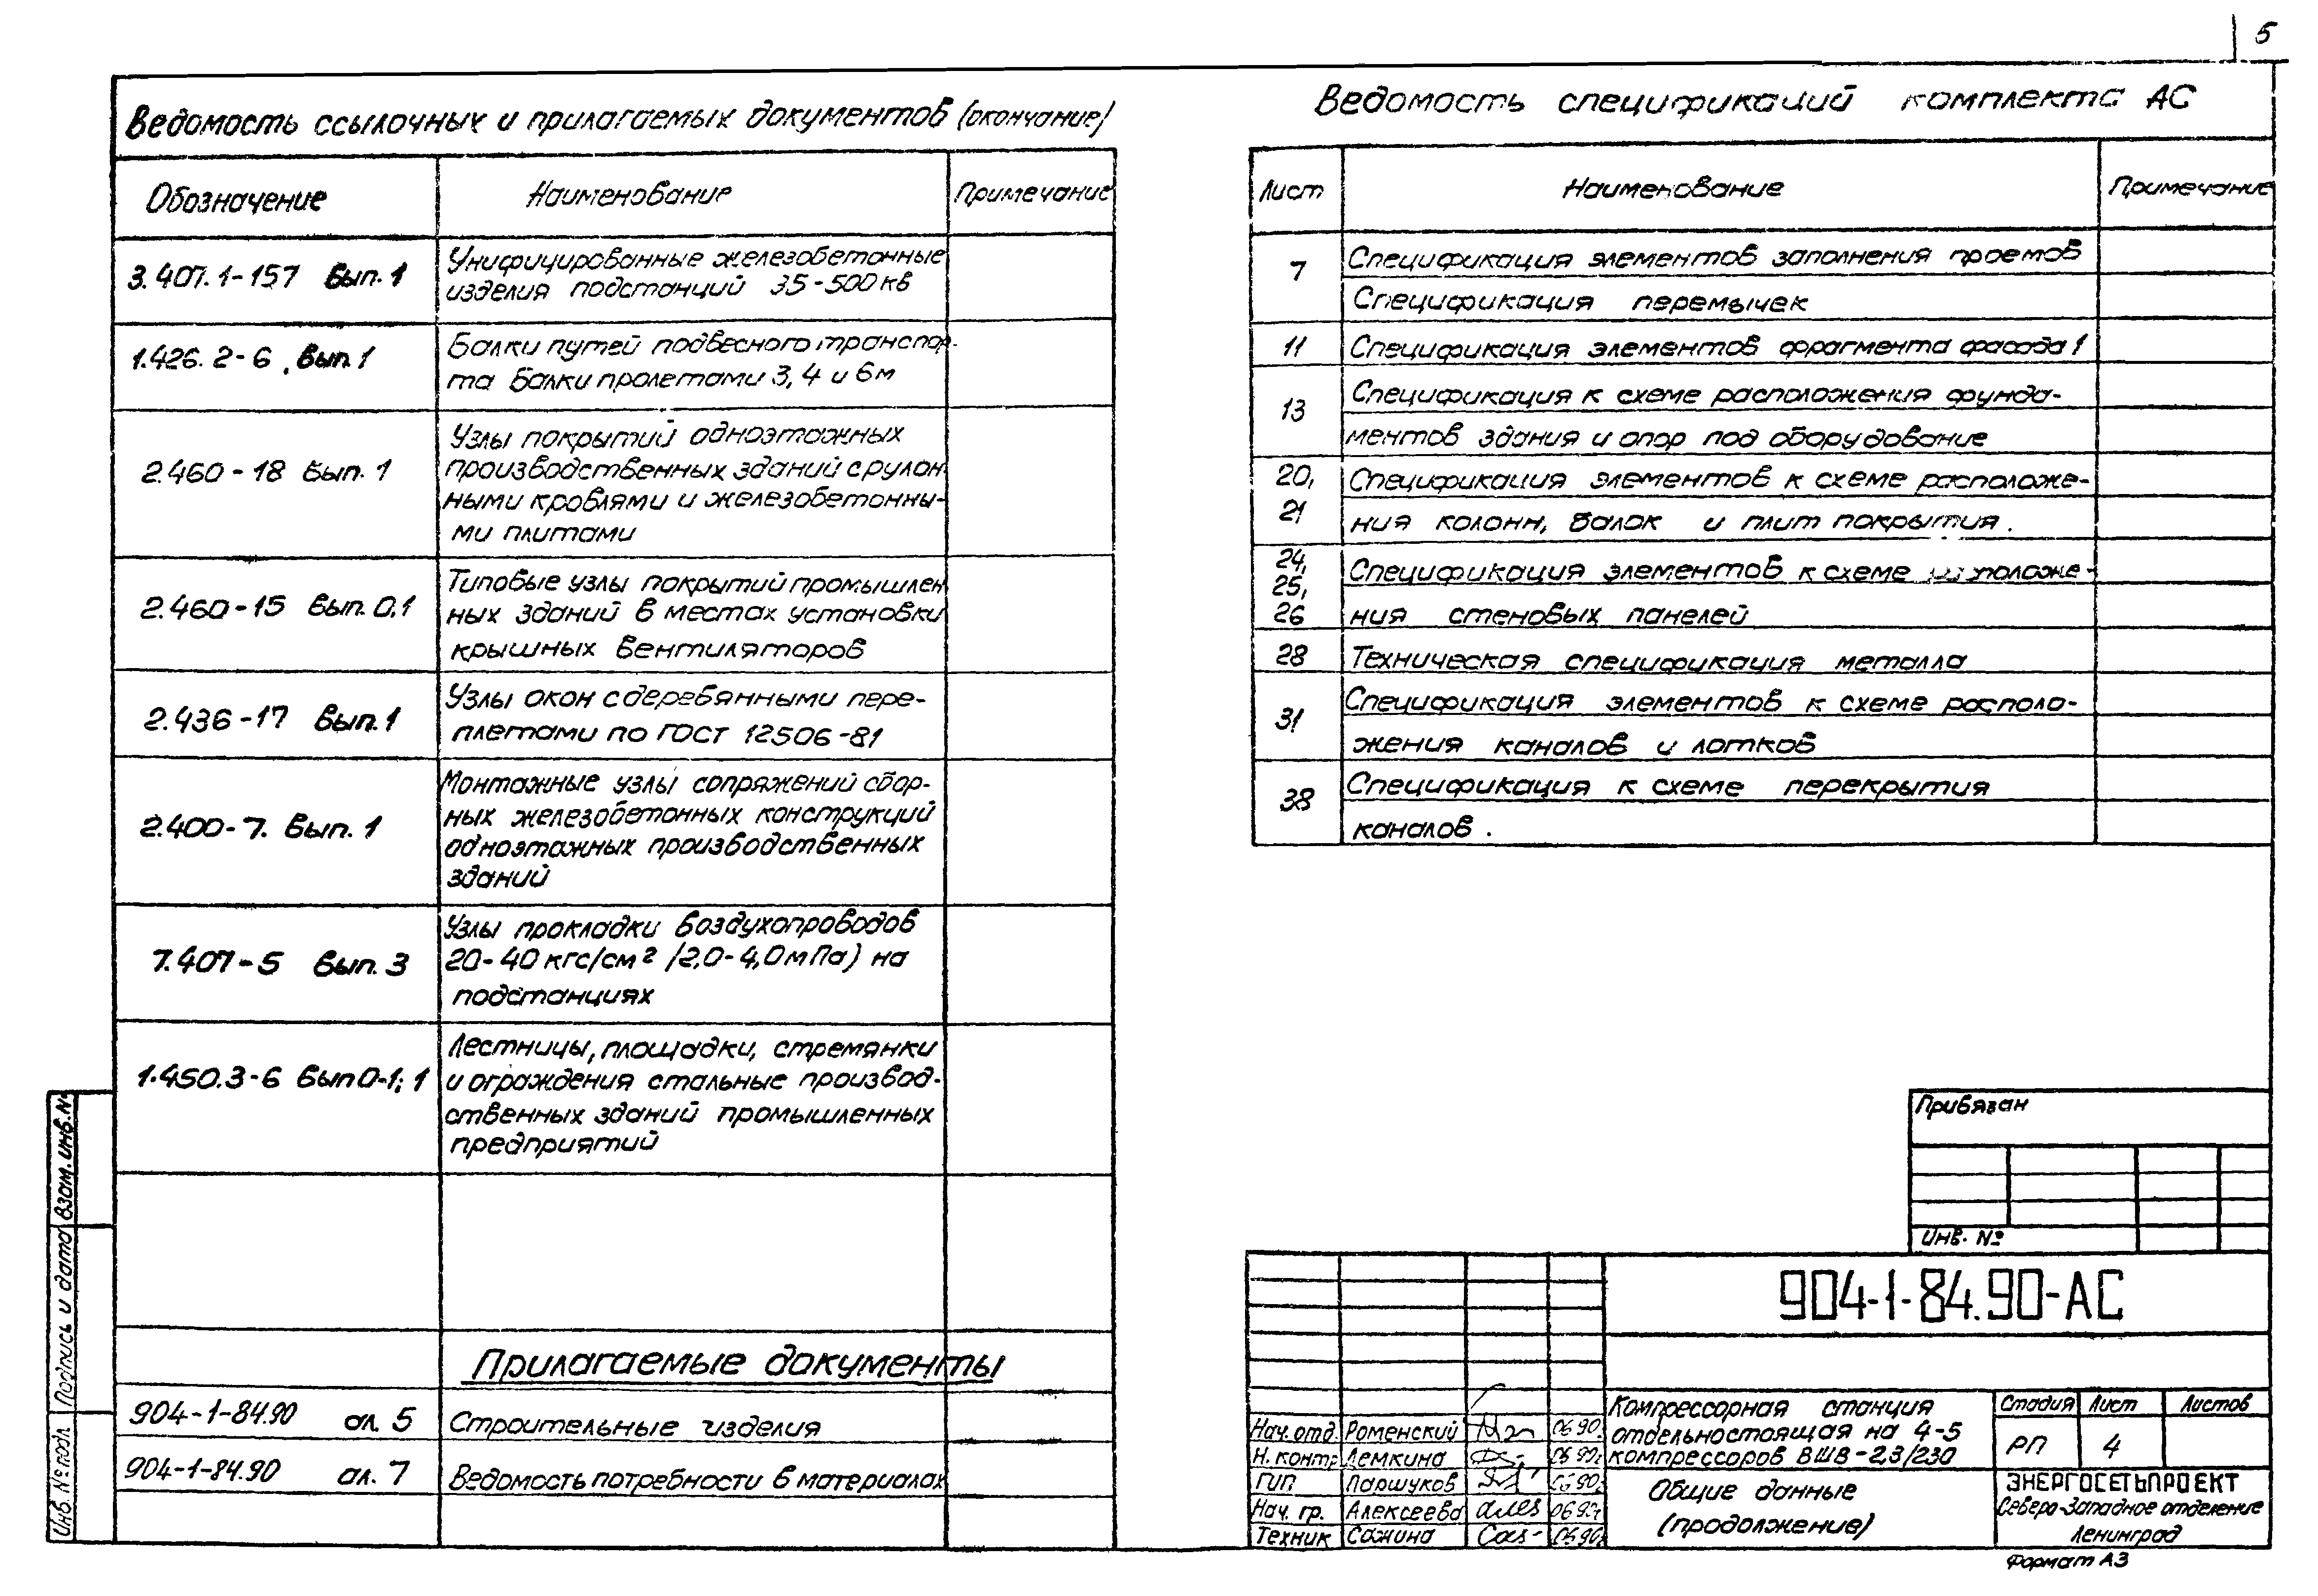 5
Ведомость ссылочных и прилагаемых документов (окончание)
Обозначение Наименование Примечание
3.407.1-157 Вып. 1
Унифицированные железобетонные
изделия подстанций 35-500 кв
1.426.2-6, Вып. 1
Балки путей подвесного транспор-
та Балки пролетами 3, 4 и 6м
2.460-18 Вып. 1
Узлы покрытий одноэтажных
производственных зданий с рулон-
ными кровлями и железобетонны-
ми плитами
2.460-15 Вып. 0,1
Типовые узлы покрытий промышлен
ных зданий в местах установки
крышных вентиляторов
2.436-17 Вып. 1
Узлы окон с деревянными пере-
плетами по ГОСТ 12506-81
2.400-7. Вып. 1
Монтажные узлы сопряжений сбор-
ных железобетонных конструкций
одноэтажных производственных
зданий
7.407-5 Вып. 3
Узлы прокладки воздухопроводов
20-40 кгс/см² /2,0-4,0 мПа) на
подстанциях
1.450.3-6 Вып 0-1; 1
Лестницы, площадки, стремянки
и ограждения стальные производ-
ственных зданий промышленных
предприятий
Прилагаемые документы
904-1-84.90 ал. 5 Строительные изделия
904-1-84.90 ал. 7 Ведомость потребности в материалах
Ведомость спецификаций комплекта АС
Лист Наименование Примечание
7
Спецификация элементов заполнения проемов
Спецификация перемычек
11 Спецификация элементов фрагмента фасада 1
13
Спецификация к схеме расположения фунда-
ментов здания и опор под оборудование
20, Спецификация элементов к схеме расположе-
21 ния колонн, балок и плит покрытия.
24, Спецификация элементов к схеме расположе-
25,
26 ния стеновых панелей
28 Техническая спецификация металла
31
Спецификация элементов к схеме располо-
жения каналов и лотков
38
Спецификация к схеме перекрытия
каналов.
Привязан
Инв. №
904-1-84.90-АС
Нач. отд. Роменский 06.90.
Н. контр Демкина 06.90г
ГИП Паршуков 06.90г
Нач. гр. Алексеева Алех 06.90г
Техник Сажина Саж- 06.90г
Компрессорная станция
отдельностоящая на 4-5
компрессоров ВШВ-2,3/230
Стадия Лист Листов
РП 4
Общие данные
(продолжение)
ЭНЕРГОСЕТЬПРОЕКТ
Северо-Западное отделение
Ленинград
Формат А3
Инв. № подл. Подпись и дата Взам. инв. №